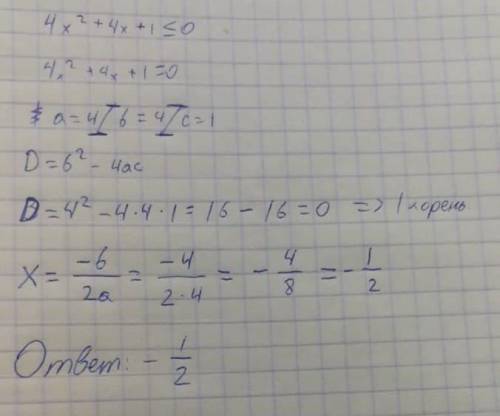 4x² + 4x + 1 ≤ 0
4x² + 4x + 1 = 0
a = 4 b = 4 c = 1
D = b² - 4ac
D = 4² - 4·4·1 = 16 - 16 = 0 => 1 корень
X = -b/2a = -4/2·4 = -4/8 = -1/2
Ответ: -1/2